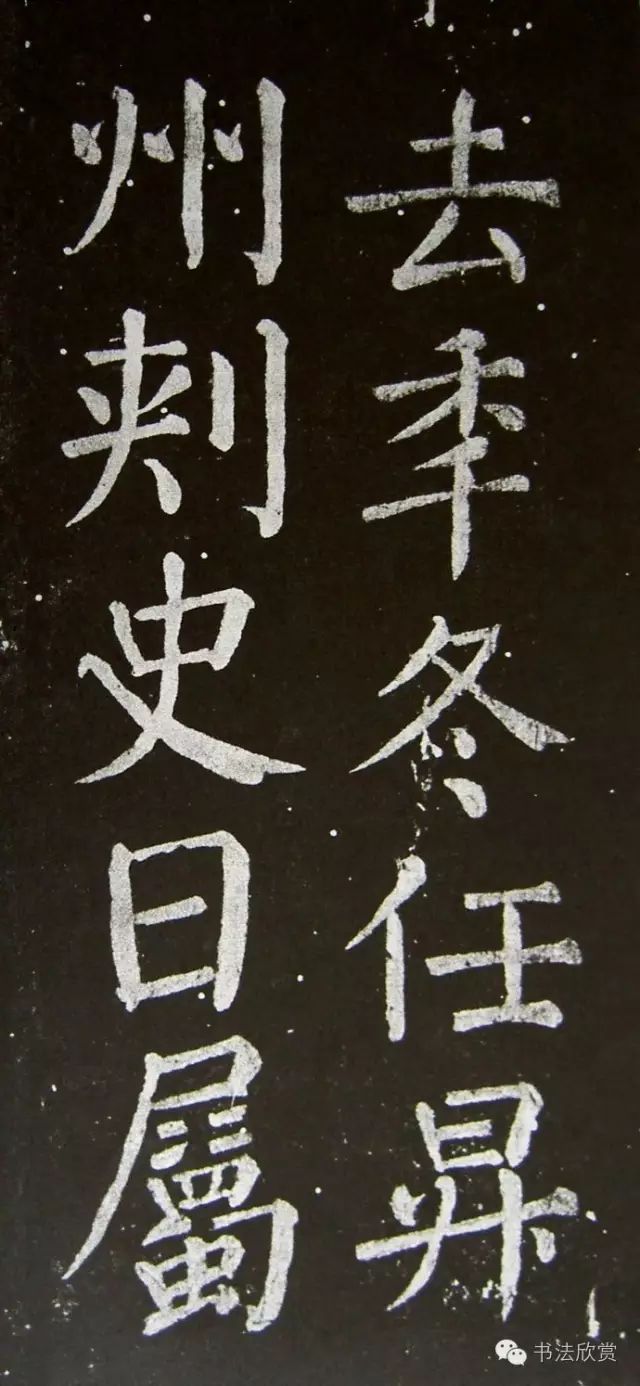 去秊冬任昇
州刾史日屬
书法欣赏